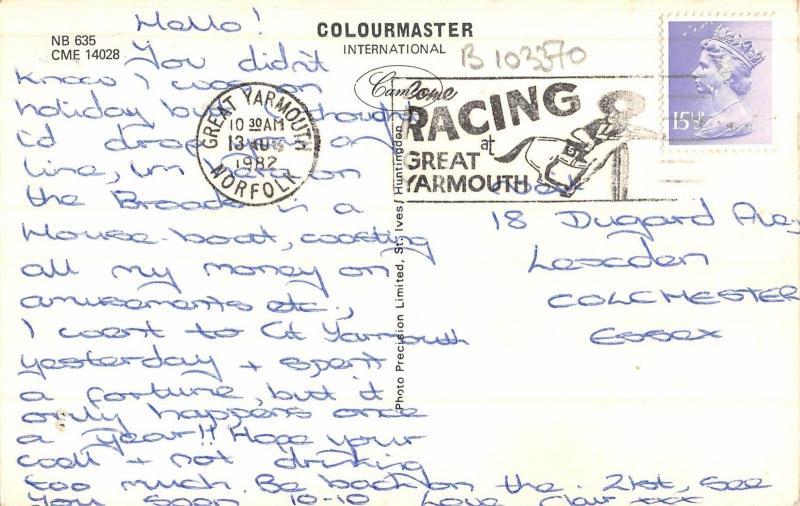 NB 635
CME 14028
COLOURMASTER
INTERNATIONAL
B 103570
GREAT YARMOUTH
10 30 AM
13 AUG
1982
NORFOLK
Come
RACING
at
GREAT
YARMOUTH
15½P
Photo Precision Limited, St. Ives/Huntingdon
Hello!
You didn't
know I was on
holiday but thought
i'd drop you a
line, im on
the Broads in a
House-boat, wasting
all my money on
amusements etc.,
I went to Gt Yarmouth
yesterday + spent
a fortune, but it
only happens once
a year!! Hope your
well + not drinking
too much. Be back on the 21st, see
you soon 10-10 Love Clair xxx
18 Dugard Ave
Lexden
COLCHESTER
Essex